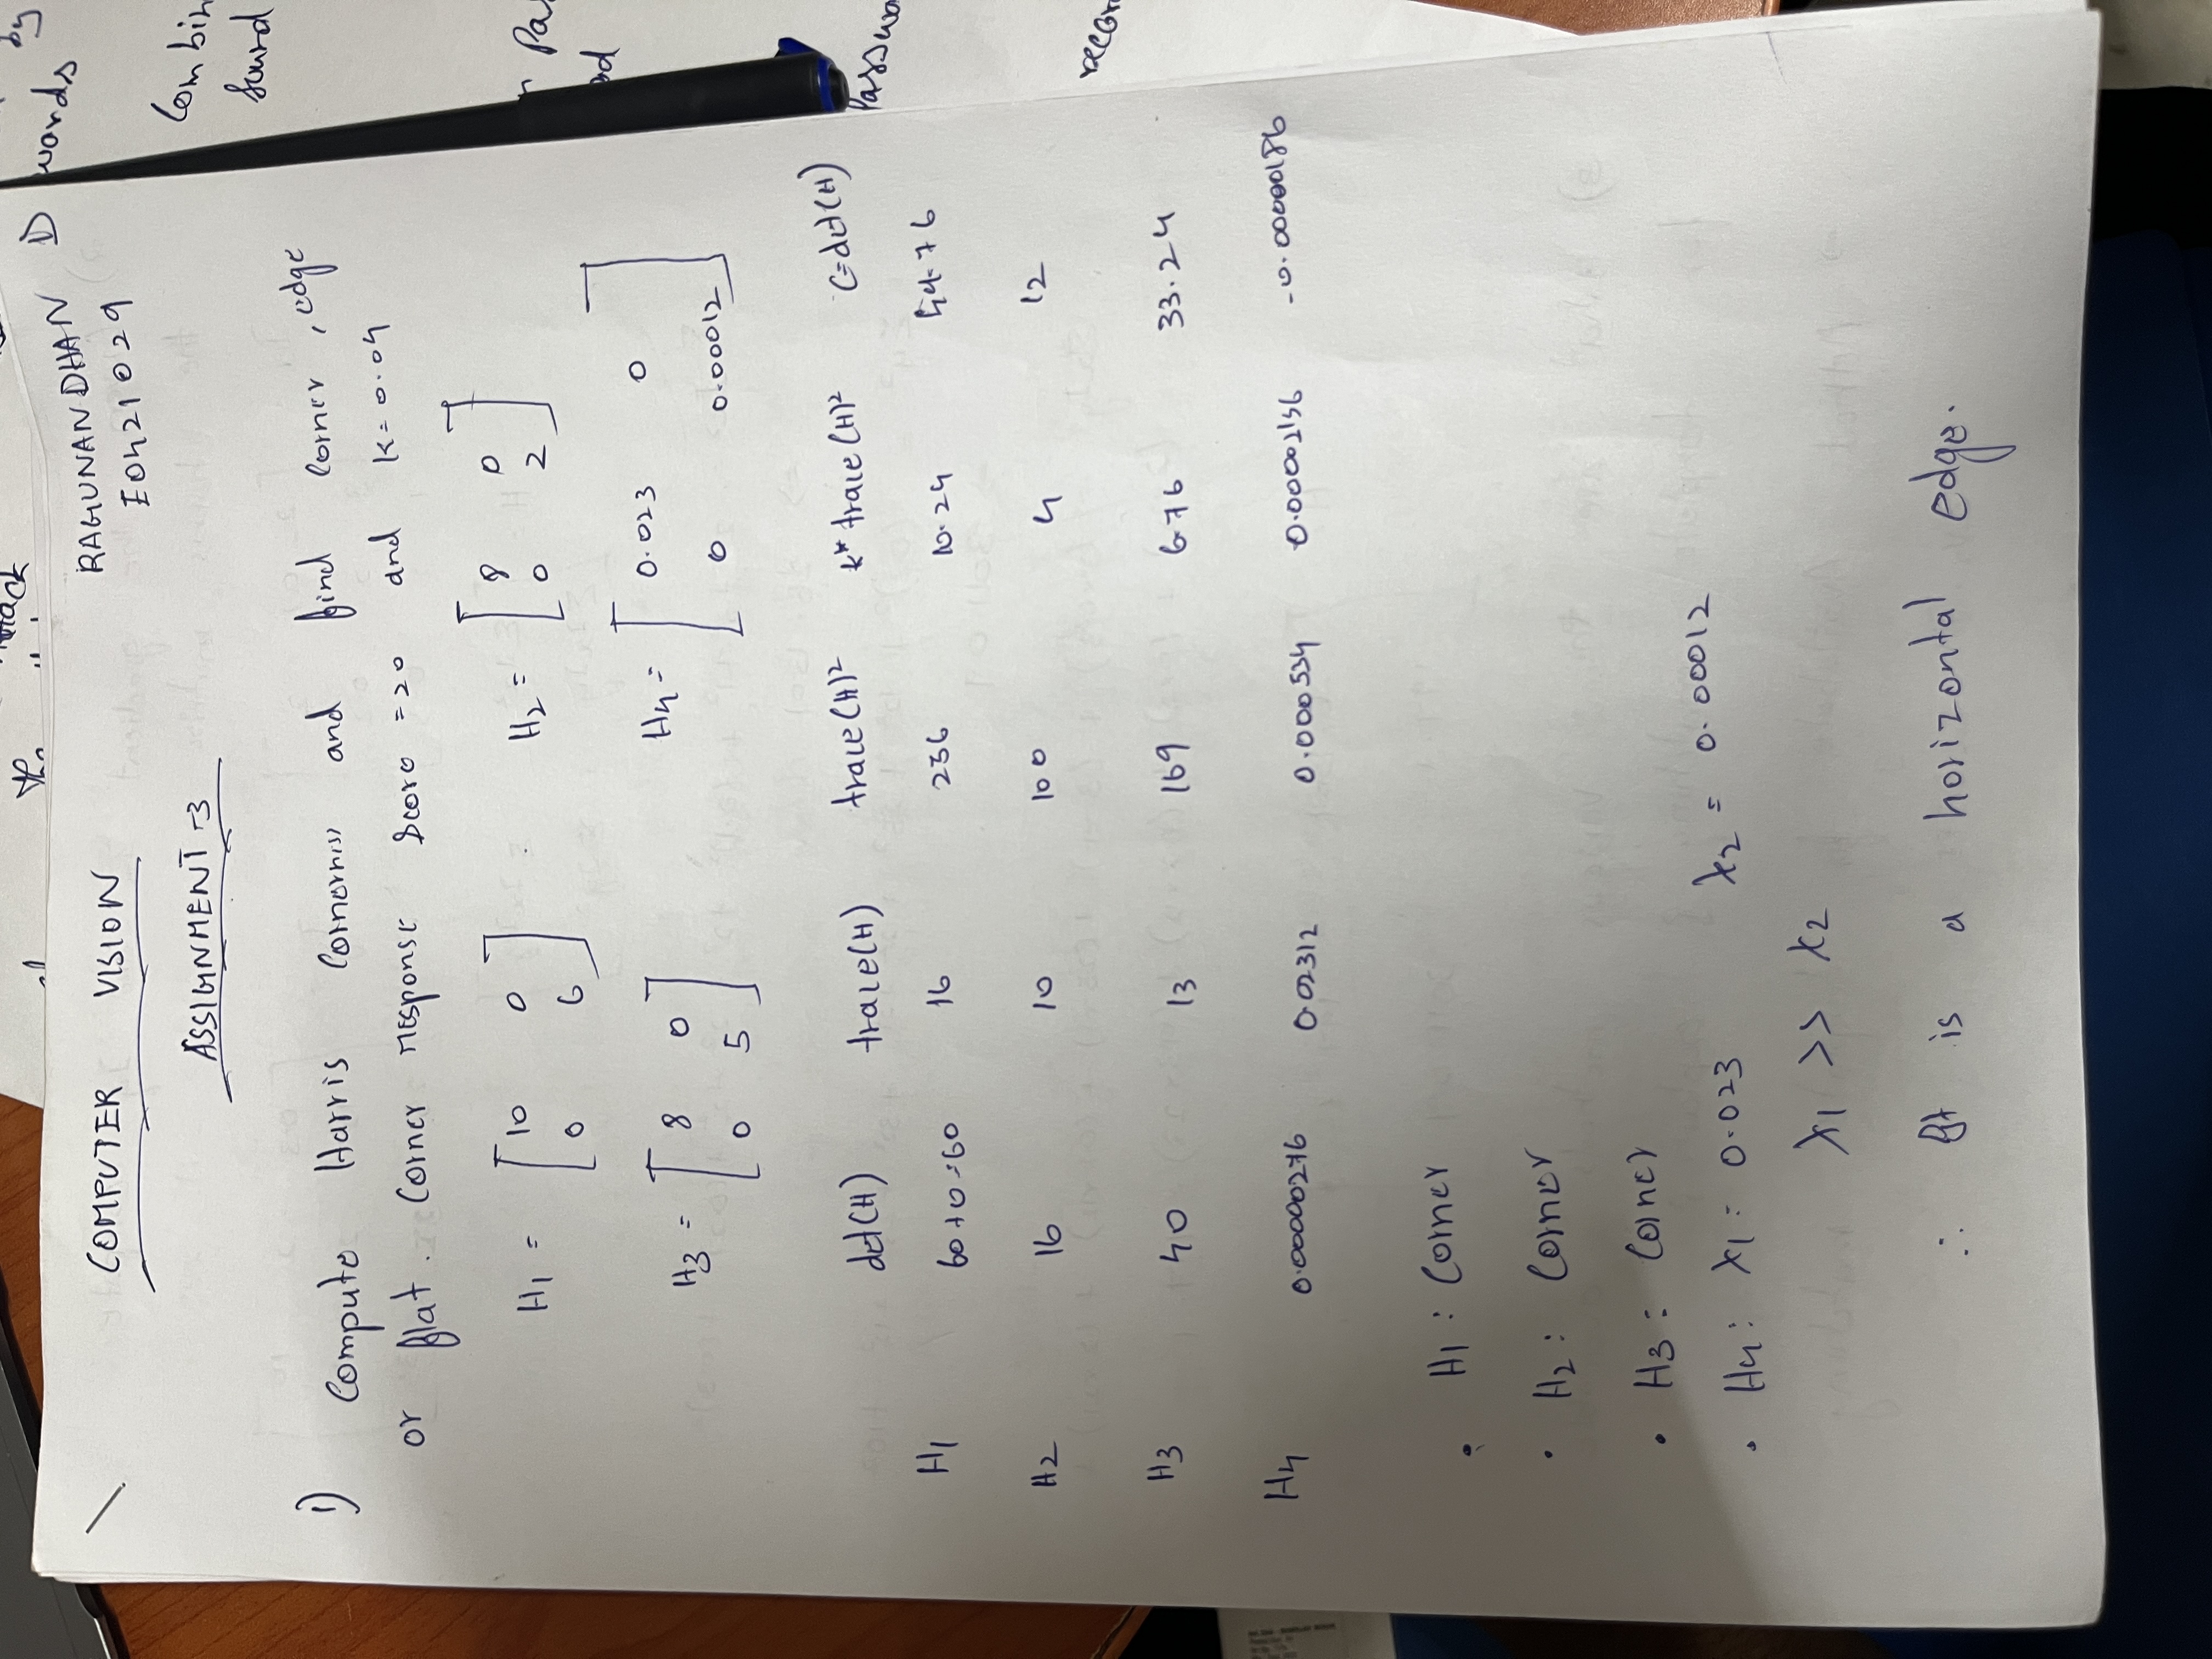 COMPUTER VISION
RAGUNANDHAN D
E0421029
ASSIGNMENT-3
1) Compute Harris Cornerness and find corner, edge
or flat. Corner response score = 20 and K = 0.04
H1 = [10 0
0 6]
H2 = [8 0
0 2]
H3 = [8 0
0 5]
H4 = [0.023 0
0 0.00012]
det(H) trace(H) trace(H)² k* trace(H)² C=det(H)
H1 60+0=60 16 256 10.24
H2 16 10 100 4 12
H3 40 13 169 6.76 33.24
H4 0.00000276 0.02312 0.000534
• H1: Corner
• H2: Corner
• H3: Corner
• H4: λ1 = 0.023 λ2 = 0.00012
λ1 >> λ2
∴ It is a horizontal edge.
The
by
words
Combin
found
Pas
Passwo
recor